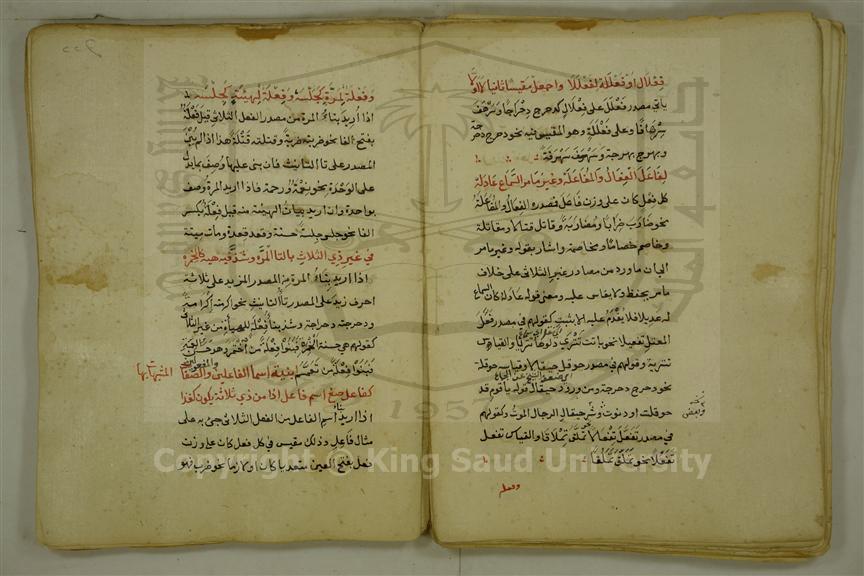 فعلال او فعللة لفعللا واجعل مقيسا ثانيا لا اولا
ياتي مصدر فعلل على فعلال كدحرج دحراجا وسرهف
سرهافا وعلى فعللة وهو المقيس فيه نحو دحرج دحرجة
وبهرج بهرجة وسرهف سرهفة
لفاعل الفعال والمفاعلة وغير ما مر السماع عادله
كل فعل كان على وزن فاعل فمصدره الفعال والمفاعلة
نحو ضارب ضرابا ومضاربة وقاتل قتالا ومقاتلة
وخاصم خصاما ومخاصمة واشار بقوله وغير ما مر
الى ان ما ورد من مصادر غير الثلاثي على خلاف
ما مر يحفظ ولا يقاس عليه ومعنى قوله عادله كان السماع
له عديلا فلا يقدم عليه الا بثبت كقولهم في مصدر فعل
المعتل تفعيلا نحو باتت تنزي دلوها تنزيا والقياس
تنزية وقولهم في مصدر حوقل حيقالا وقياسه حوقلة
نحو دحرج دحرجة ومن ورود حيقال قوله يا قوم قد
حوقلت او دنوت وشر حيقال الرجال الموت وكقولهم
في مصدر تفعل تفعالا تملق تملاقا والقياس تفعل
تفعلا نحو تملق تملقا
وفعلة
وفعلة لمرة كجلسه وفعلة لهيئة كجلسه
اذا اريد بناء المرة من مصدر الفعل الثلاثي قيل فعلة
بفتح الفا نحو ضربته ضربة وقتلته قتلة هذا اذا لم يبن
المصدر على تا التانيث فان بنى عليها وصف بما يدل
على الوحدة نحو نعمة ورحمة فاذا اريد المرة وصف
بواحدة وان اريد بيان الهيئة منه قيل فعلة بكسر
الفا نحو جلس جلسة حسنة وقعد قعدة ومات ميتة
في غير ذي الثلاث بالتا المره وشذ فيه هيئة كالخمره
اذا اريد بناء المرة من المصدر المزيد على ثلاثة
احرف زيد على المصدر تا التانيث نحو اكرمته اكرامة
ودحرجة دحراجة وشذ بنا فعلة للهيأة من غير الثلاثي
كقولهم هي حسنة الخمرة فبنوا فعلة من اختمر وهو حسن العمة
فبنوا فعلة من تعمم ابنية اسما الفاعلين والمفعولين والصفات المشبهات بها
كفاعل صغ اسم فاعل اذا من ذي ثلاثة يكون كغذا
اذا اريد بناء اسم الفاعل من الفعل الثلاثي جيء به على
مثال فاعل وذلك مقيس في كل فعل كان على وزن
فعل بفتح العين متعديا كان او لازما نحو ضرب فهو
1957
Copyright © King Saud University